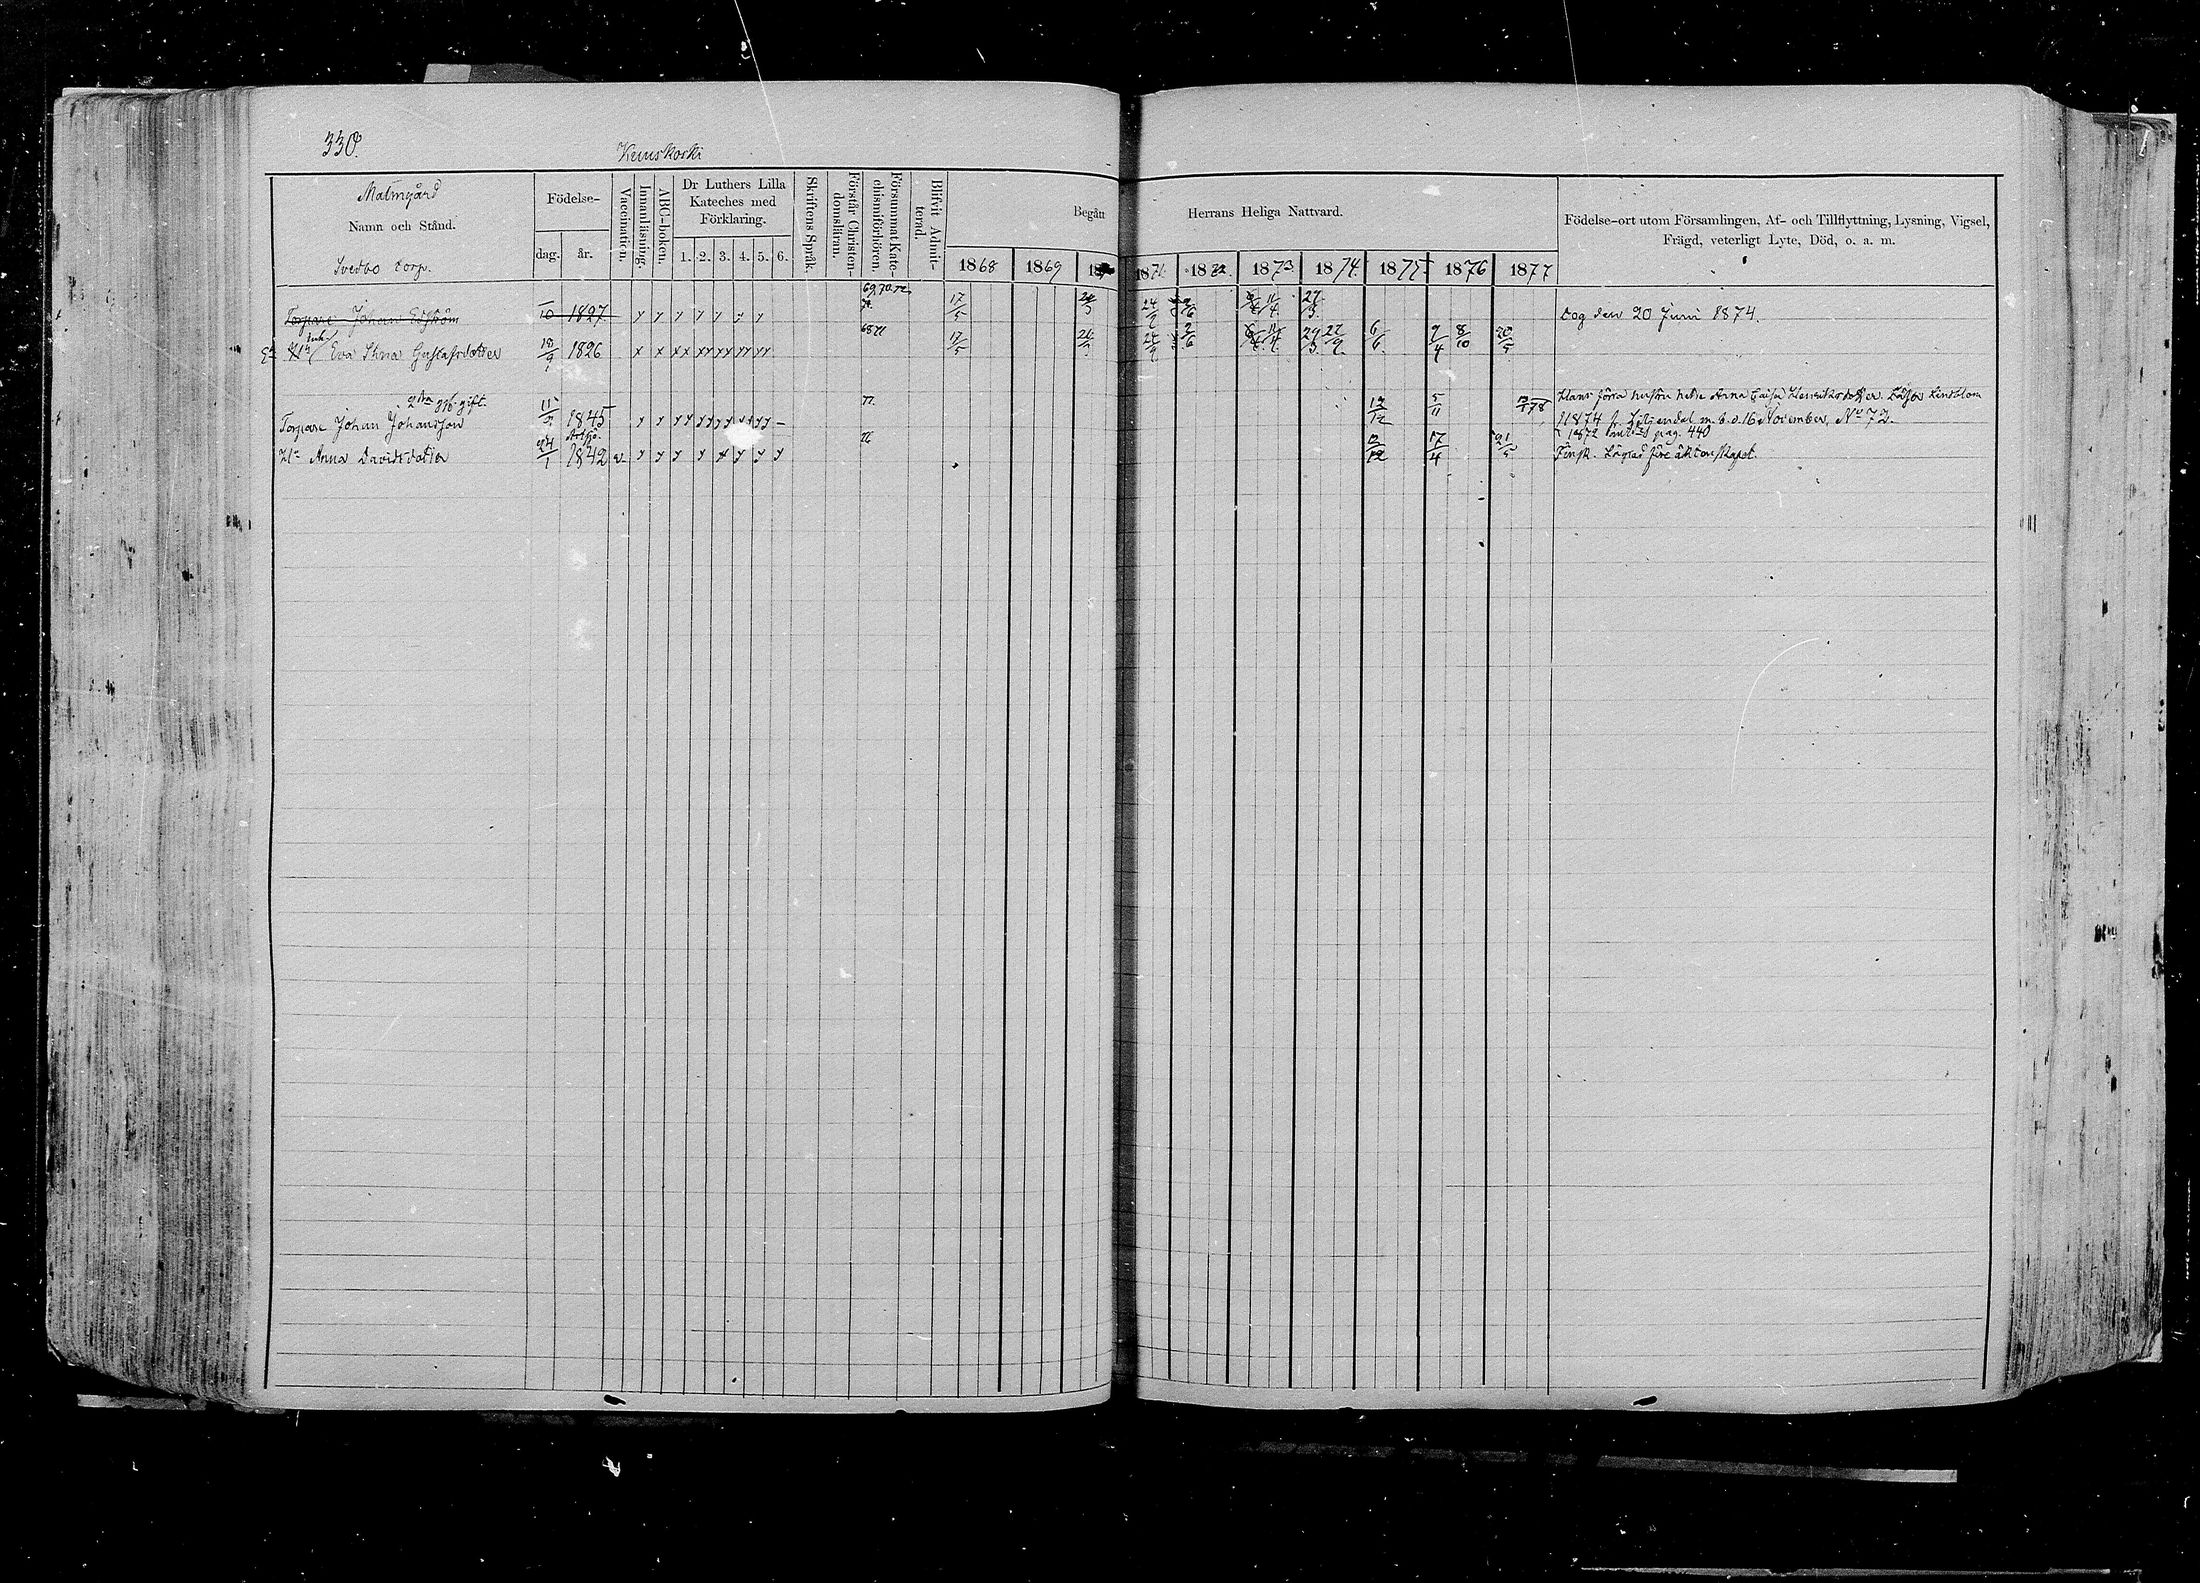 330.
Kuuskoski
Malmgård
Namn och Stånd.
Svedbo torp.
Födelse-
dag. år.
Vaccination.
Innanläsning.
ABC-boken.
Dr Luthers Lilla Kateches med Förklaring.
1. 2. 3. 4. 5. 6.
Skriftens Språk.
Förstår Christendomsläran.
Försummat Katechismiförhören.
Blifvit Admitterad.
Begått Herrans Heliga Nattvard.
1868 1869 1871. 1872. 1873. 1874. 1875 1876 1877
Födelse-ort utom Församlingen, Af- och Tillflyttning, Lysning, Vigsel,
Frägd, veterligt Lyte, Död, o. a. m.
Torpare Johan Edström 10 1827. y y y y y y y 69.70.72 17/5 24/9 27/3. Dog den 20 Juni 1874.
Eva Stina Gustafsdotter 18/9 1826 x x xx yy yy yy yy 6871 17/5 24/9 6/6 9/4 8/10 20/5
2dra ggb. gift.
Torpare Johan Johansson 1845 y y yy yy yy yy yy – 77. 12/12 5/11 Hans förra hustru hette Anna Caisa Henriksdotter.
1874 fr. Liljendal m. b. d. 16 November, No 72.
1872 pag. 440
Hu Anna Davidsdotter 24/1 1842 v. y y y y y y y y 76 12/12 17/4 21/5 Finsk. Lägrad före äktenskapet.